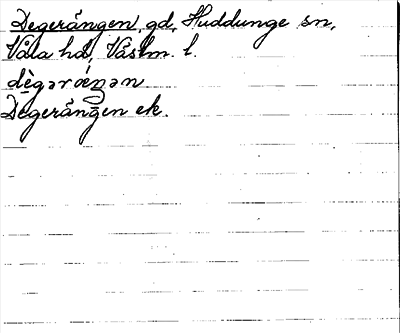 Degerängen, gd, Huddunge sn,
Våla hd, Västm. l.
dègərǽŋən
Degerängen ek.